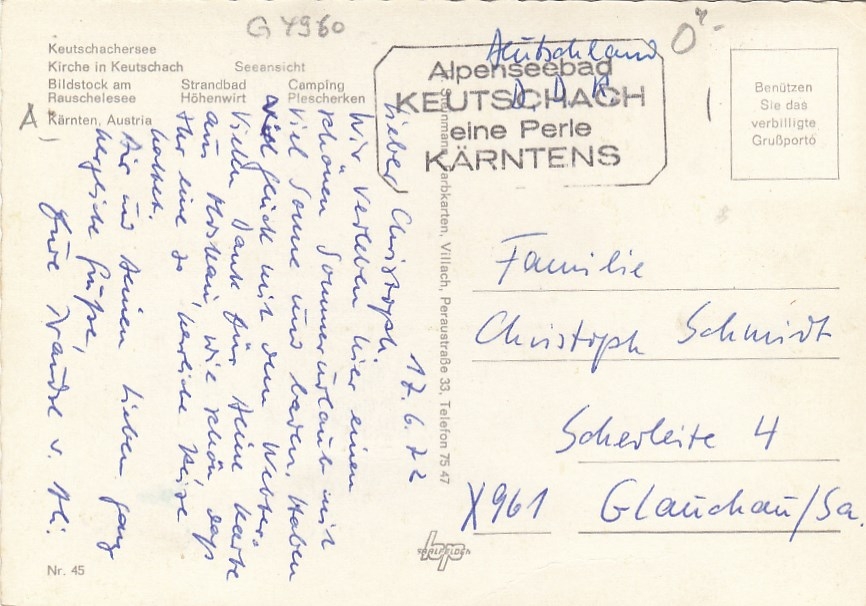 G 4960
Keutschachersee
Kirche in Keutschach Seeansicht
Bildstock am Strandbad Camping
Rauschelesee Höhenwirt Plescherken
Kärnten, Austria
A
Deutschland
DDR
Alpenseebad
KEUTSCHACH
eine Perle
KÄRNTENS
Benützen
Sie das
verbilligte
Grußporto
17.6.72
Lieber Christoph,
Wir verleben hier einen
schönen Sommerurlaub mit
viel Sonne und baden. Haben
viel Glück mit dem Wetter.
Vielen Dank für Deine Karte
aus Moskau, wie schön daß
Ihr eine so herrliche Reise
hattet.
Dir und Deinen Lieben ganz
herzliche Grüße,
Eure Traudl v.
Farbkarten, Villach, Peraustraße 33, Telefon 75 47
Familie
Christoph Schmidt
Scherleite 4
X961 Glauchau/Sa.
Nr. 45